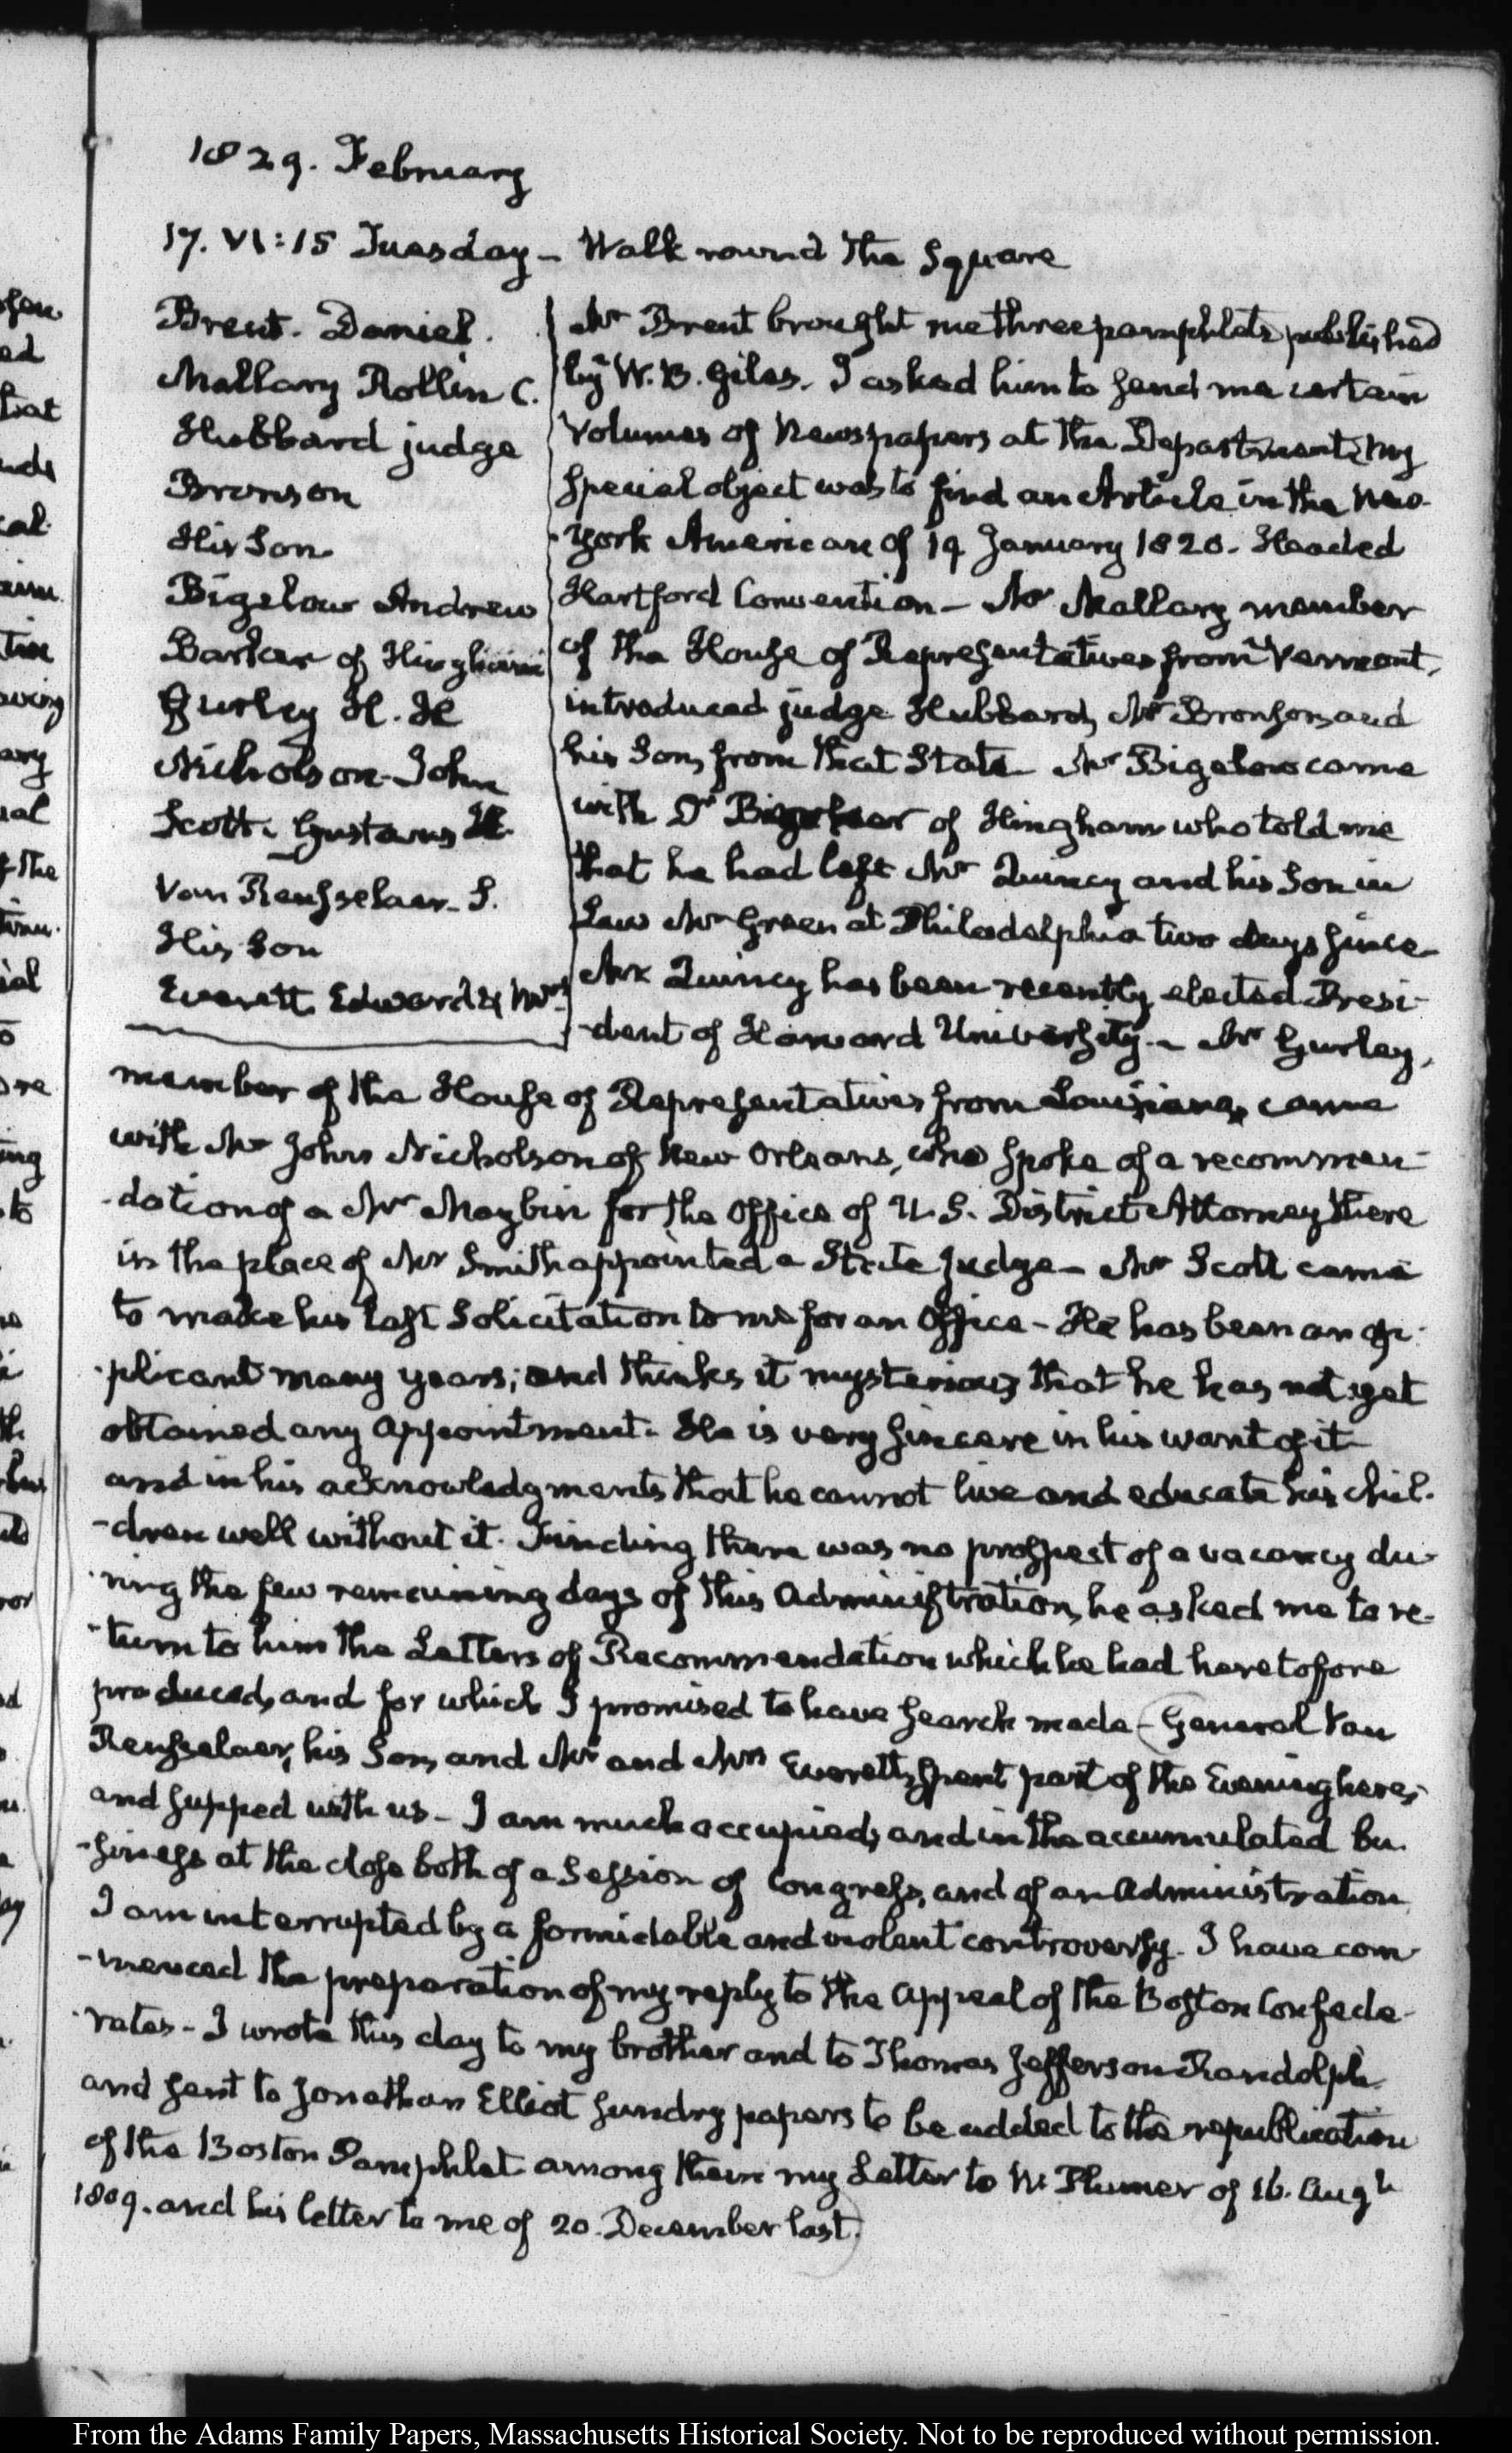 1829. February
17. VI:15 Tuesday – Walk round the Square
Brent. Daniel.
Mallary Rollin C.
Hubbard judge
Bronson
His Son
Bigelow Andrew
Barker of Hingham
Gurley H. H
Nicholson John
Scott. Gustavus H.
Van Rensselaer. S.
His Son
Everett Edward & Mrs
Mr Brent brought me three pamphlets, published
by W. B. Giles. I asked him to send me certain
Volumes of Newspapers at the Department, my
special object was to find an Article in the New-
-York American of 19 January 1820. Headed
Hartford Convention – Mr Mallary member
of the House of Representatives from Vermont,
introduced judge Hubbard, Mr Bronson, and
his Son, from that State. Mr Bigelow came
with Dr of Hingham who told me
that he had left Mr Quincy and his Son in
Law Mr Green at Philadelphia two days since
Mr Quincy has been recently elected Presi-
-dent of Harvard University. – Mr Gurley,
member of the House of Representatives from Louisiana, came
with Mr John Nicholson of New Orleans, who spoke of a recommen-
-dation of a Mr Maybin for the Office of U. S. District Attorney there
in the place of Mr Smith appointed a State judge – Mr Scott came
to make his last Solicitation to me for an Office – He has been an ap-
-plicant many years; and thinks it mysterious that he has not yet
obtained any appointment. He is very sincere in his want of it
and in his acknowledgments that he cannot live and educate his chil-
-dren well without it. Finding there was no prospect of a vacancy du-
-ring the few remaining days of this Administration, he asked me to re-
-turn to him the Letters of Recommendation which he had heretofore
produced, and for which I promised to have search made – General Van
Rensselaer, his Son, and Mr and Mrs Everett, spent part of the Evening here,
and supped with us – I am much occupied, and in the accumulated bu-
-siness at the close both of a Session of Congress, and of an Administration
I am interrupted by a formidable and violent controversy. I have com-
-menced the preparation of my reply to the Appeal of the Boston Confede-
-rates – I wrote this day to my brother and to Thomas Jefferson Randolph
and sent to Jonathan Elliot sundry papers to be added to the republication
of the Boston Pamphlet among them my Letter to W. Plumer of 16. Augt
1809. and his letter to me of 20. December last.
From the Adams Family Papers, Massachusetts Historical Society. Not to be reproduced without permission.